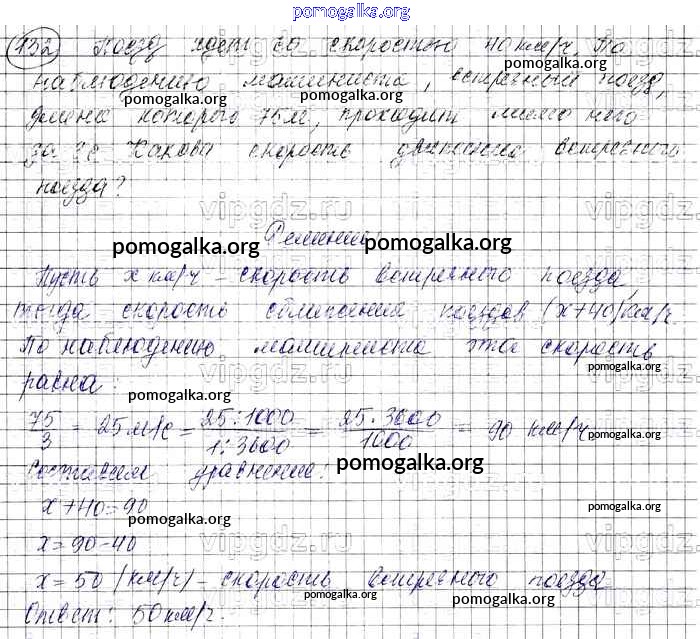 pomogalka.org
132 Поезд идёт со скоростью 40 км/ч. По
наблюдению машиниста, встречный поезд,
pomogalka.org pomogalka.org
длина которого 75 м, проходит мимо него
за 3 с. Какова скорость движения встречного
pomogalka.org pomogalka.org
поезда?
vipgdz.ru vipgdz.ru
Решение
pomogalka.org pomogalka.org
Пусть x км/ч - скорость встречного поезда,
тогда скорость сближения поездов (x+40) км/ч.
По наблюдению машиниста эта скорость
равна:
pomogalka.org pomogalka.org
75/3 = 25 м/с = 25:1000/1:3600 = 25·3600/1000 = 90 км/ч
pomogalka.org
Составим уравнение:
pomogalka.org
x+40=90
pomogalka.org pomogalka.org
x=90-40
vipgdz.ru vipgdz.ru
x=50 (км/ч) - скорость встречного поезда
pomogalka.org pomogalka.org
Ответ: 50 км/ч.